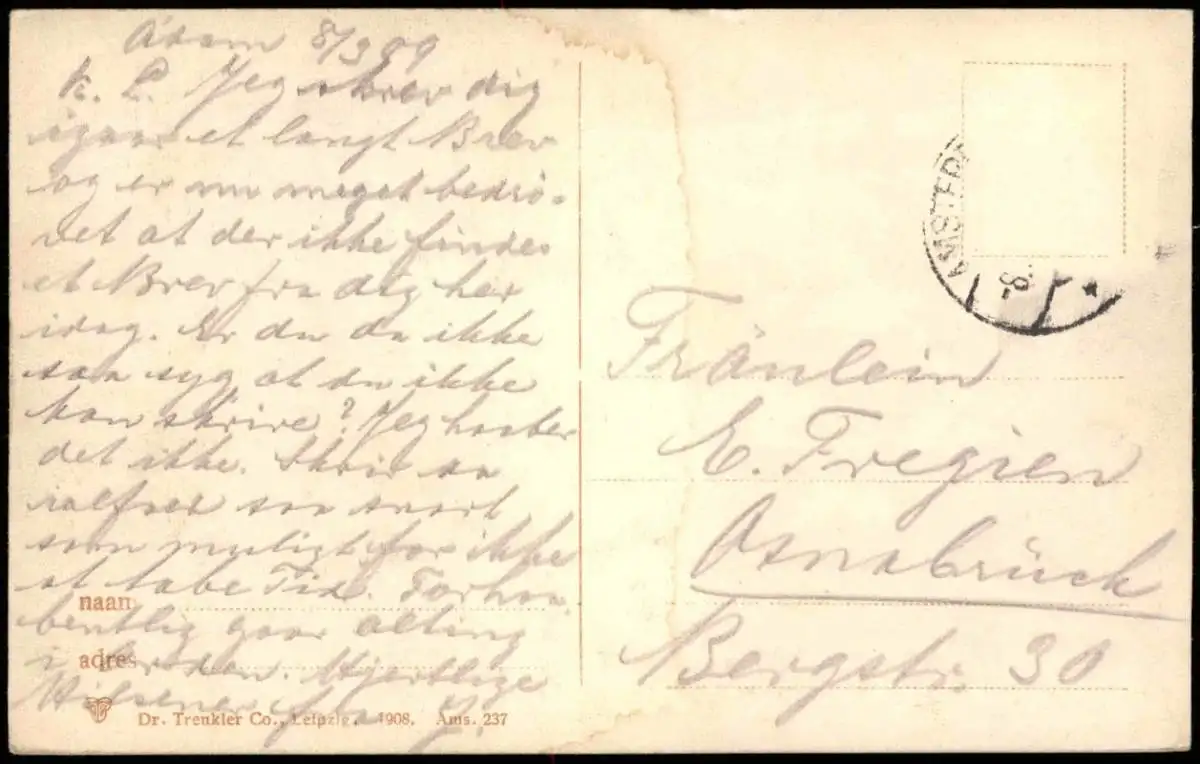 A'dam 8/3 09
K. E. Jeg skrev dig
igaar et langt Brev
og er nu meget bedrö-
vet at der ikke findes
et Brev fra dig her
idag. Er du da ikke
saa syg at du ikke
kan skrive? Jeg haaber
det ikke. Skriv saa
ialfald saa snart
som muligt for ikke
at tabe Tid. Forhaa-
bentlig gaar alting
i orden. Hjertlige
Hilsener fra
naam
adres
Dr. Trenkler Co., Leipzig. 1908. Ams. 237
AMSTERD
-8.
Fräulein
E. Fregien
Osnabrück
Bergstr. 30